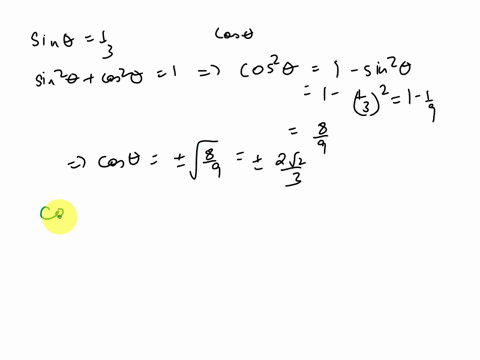 sinθ = 1/3 cosθ
sin²θ + cos²θ = 1 ⇒ cos²θ = 1 - sin²θ
= 1 - (1/3)² = 1 - 1/9
= 8/9
⇒ cosθ = ±√(8/9) = ± 2√2/3
Co